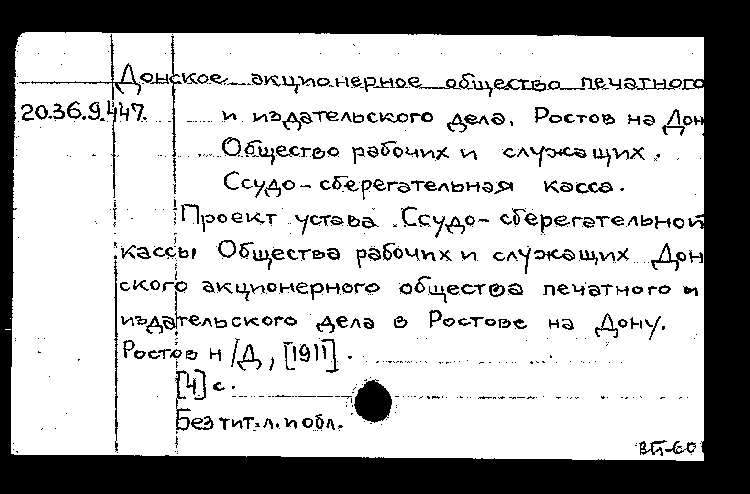 Донское акционерное общество печатного
20.36.9.447.
и издательского дела. Ростов на Дон
Общество рабочих и служащих.
Ссудо-сберегательная касса.
Проект устава Ссудо-сберегательной
кассы Общества рабочих и служащих Дон
ского акционерного общества печатного и
издательского дела в Ростове на Дону.
Ростов н/Д, [1911].
[4] с.
Без тит. л. и обл.
ВП-60